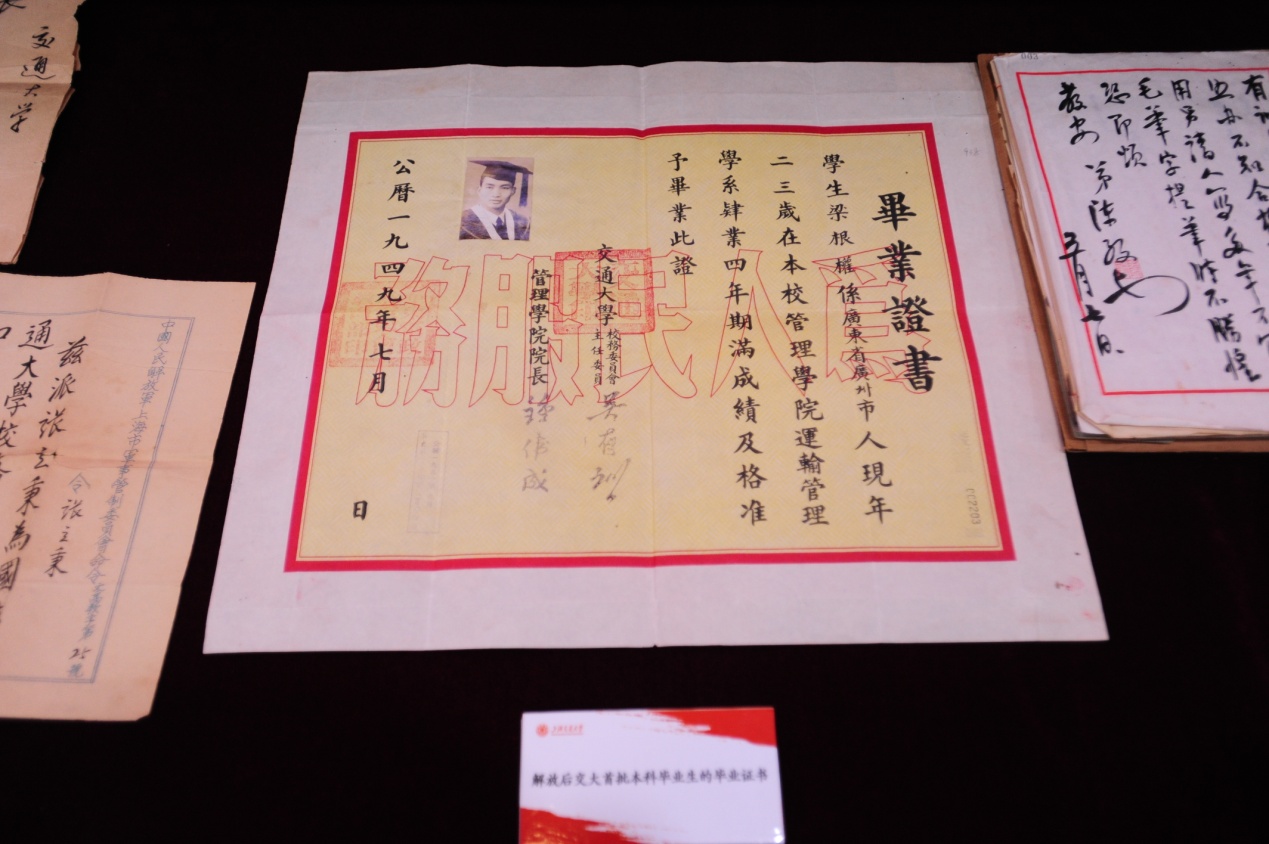 畢業證書
學生梁根權係廣東省廣州市人現年
二三歲在本校管理學院運輸管理
學系肄業四年期滿成績及格准
予畢業此證
交通大學校務委員會主任委員 吳有訓
管理學院院長 鍾偉成
公曆一九四九年七月 日
為人民服務
CC2203
解放后交大首批本科毕业生的毕业证书
交通大學
中國人民解放軍上海市軍事管制委員會命令
25
號
令張立秉
茲派張立秉為國
通大學校
003
用另請人寫
毛筆字提筆時不勝惶
恐即頌
教安 弟陳
五月七日